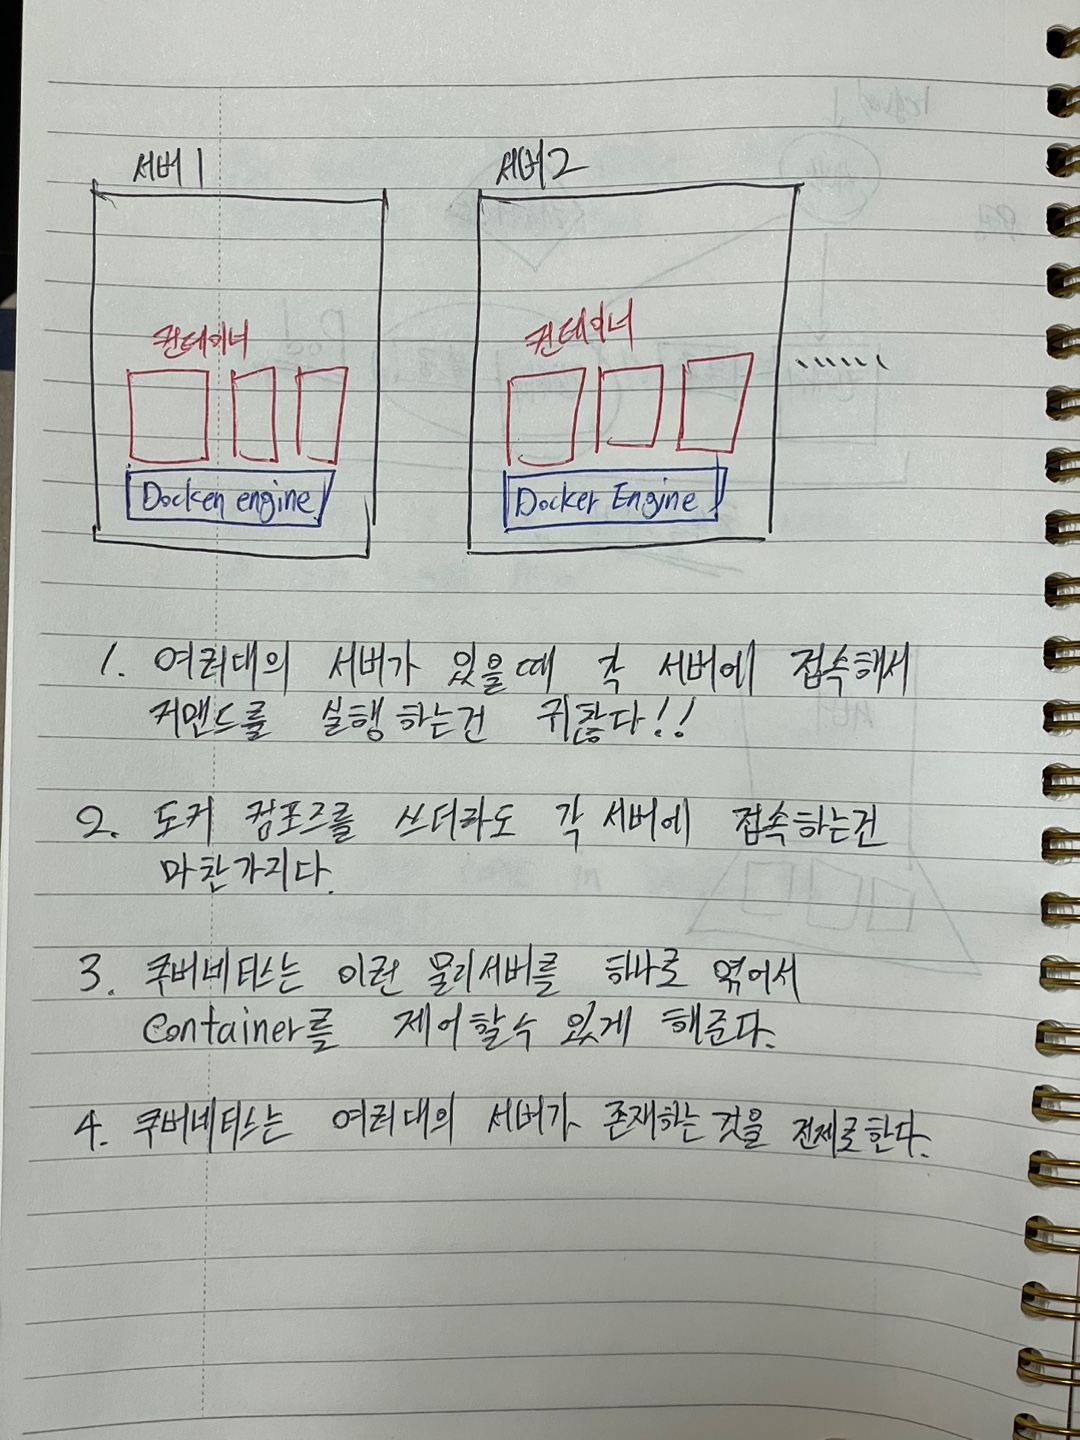 서버1
서버2
컨테이너
컨테이너
Docker engine
Docker Engine
1. 여러대의 서버가 있을때 각 서버에 접속해서
커맨드를 실행하는건 귀찮다!!
2. 도커 컴포즈를 쓰더라도 각 서버에 접속하는건
마찬가지다.
3. 쿠버네티스는 이런 물리서버를 하나로 엮어서
Container를 제어할수 있게 해준다.
4. 쿠버네티스는 여러대의 서버가 존재하는 것을 전제로한다.